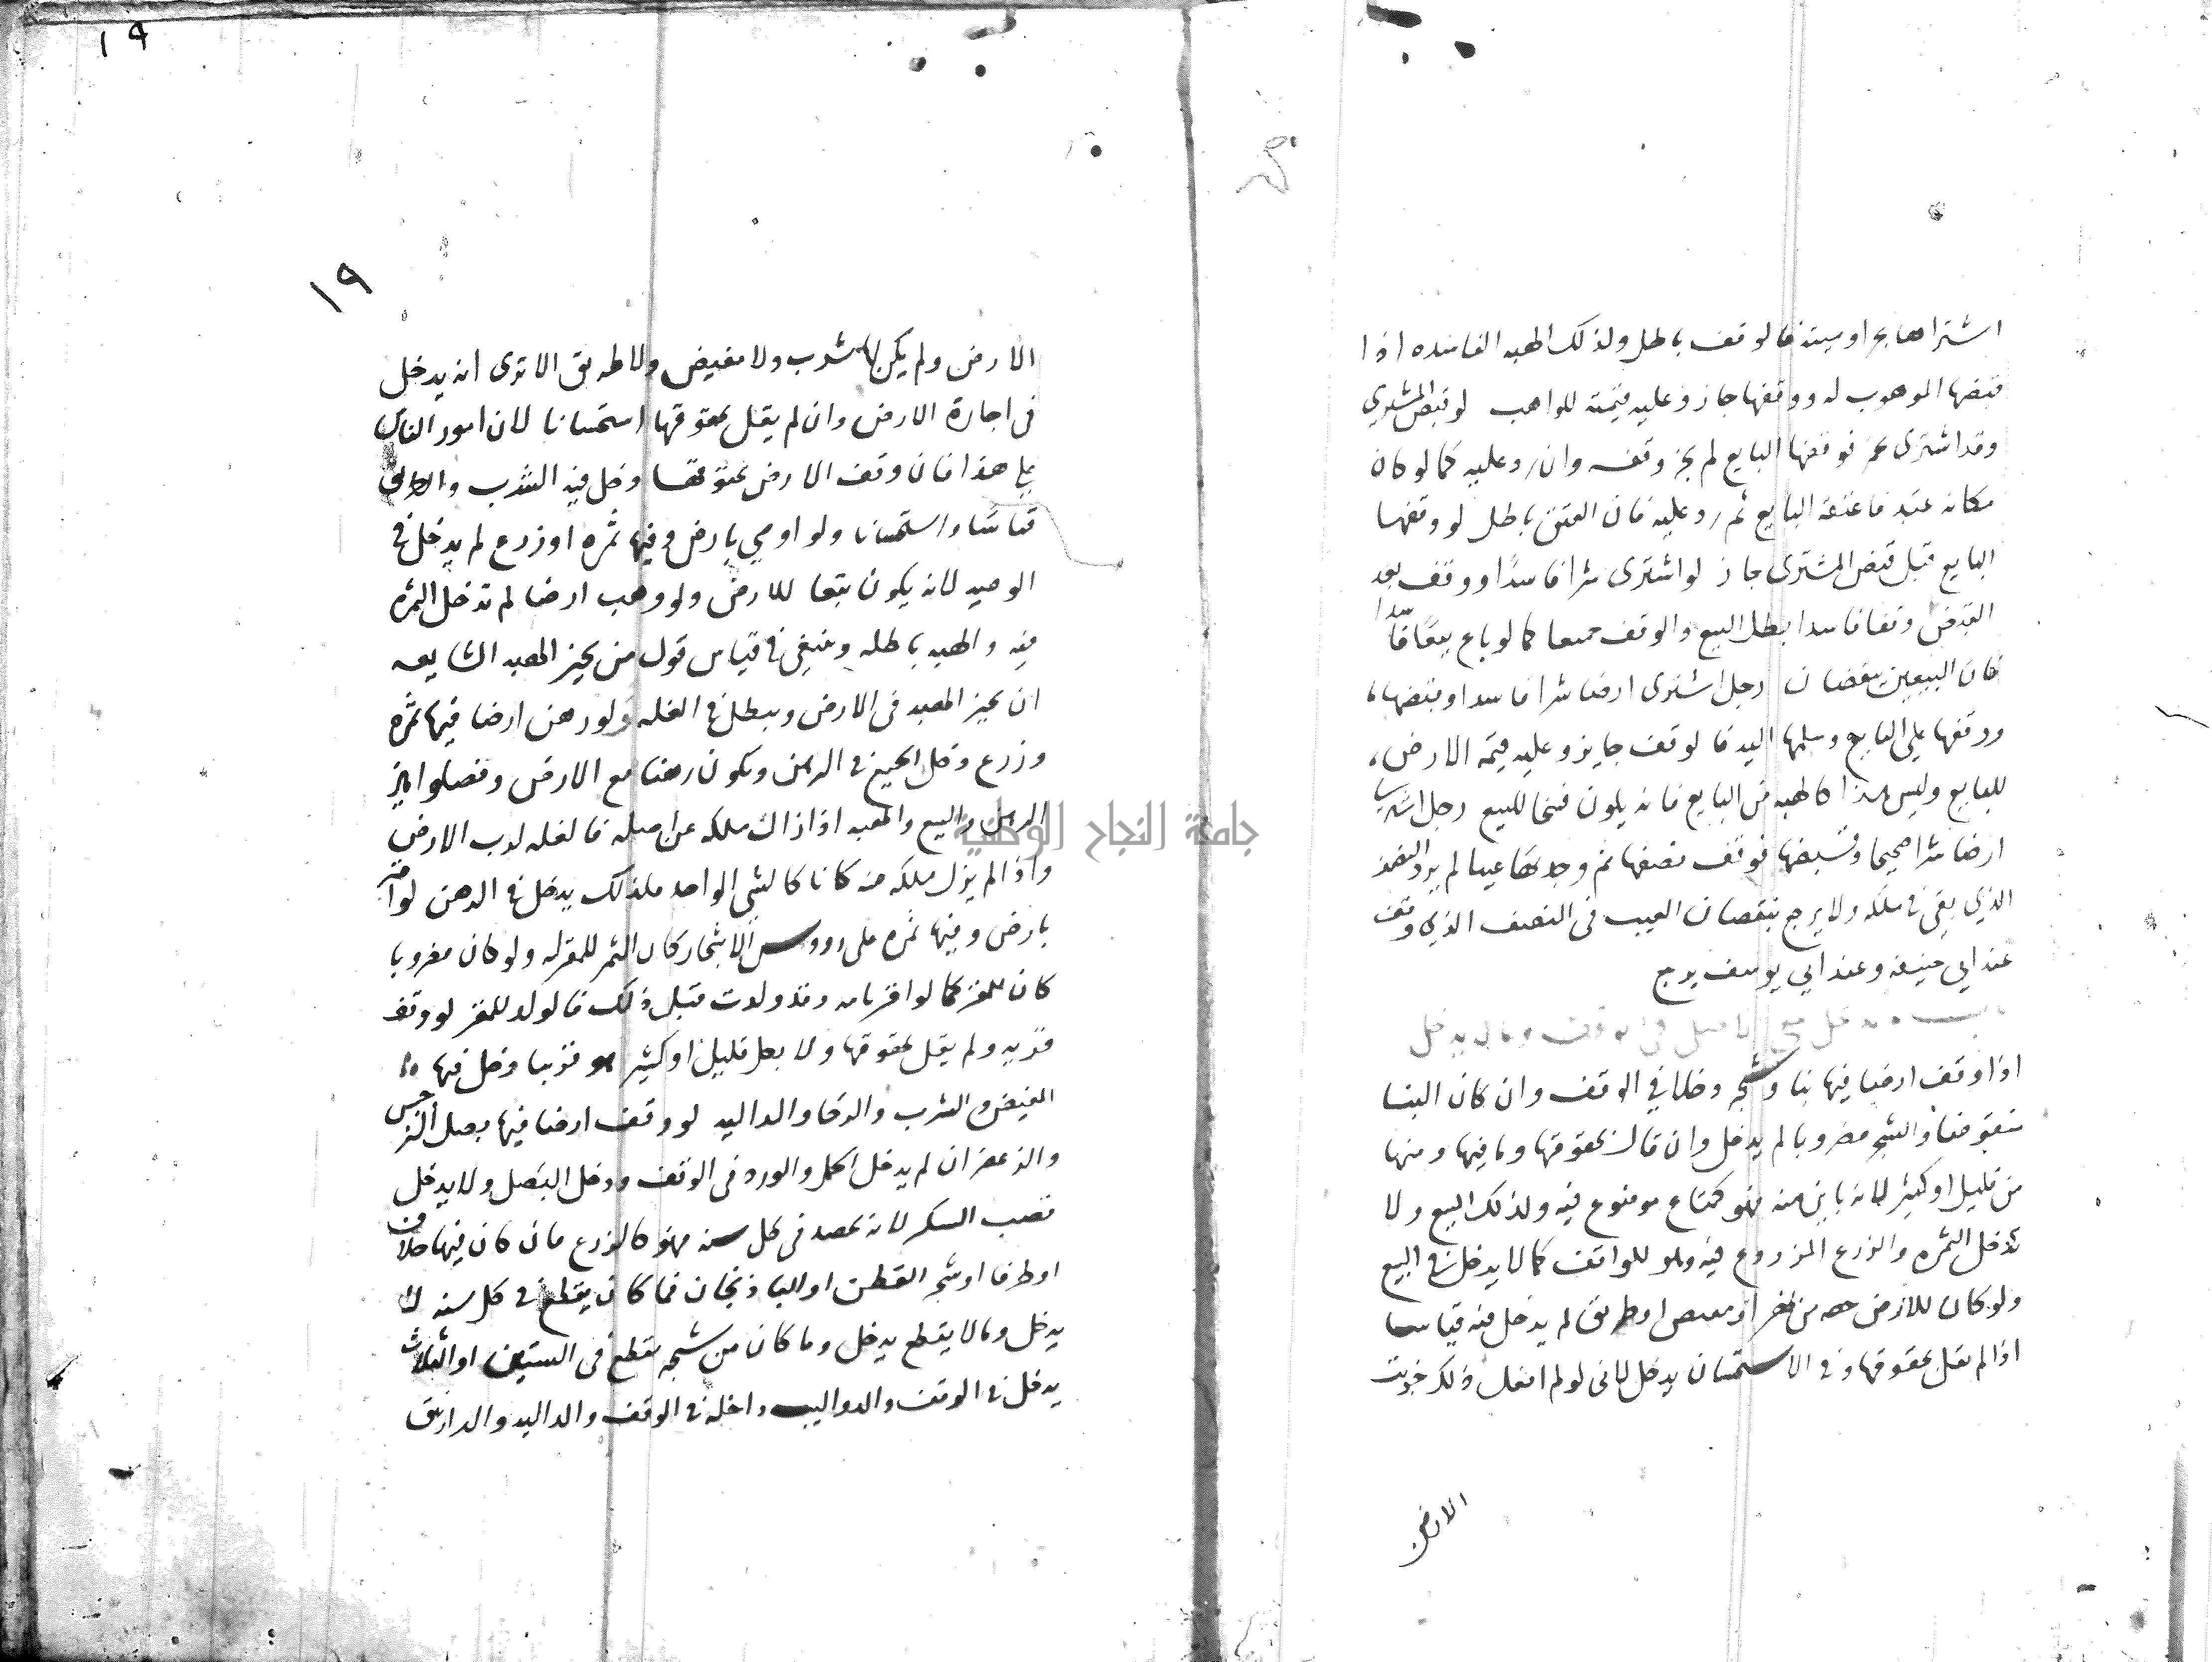 اشتراها بحر او ميتة فالوقف باطل ولذلك الهبه الفاسده اذا
قبضها الموهوب له ووقفها جاز وعليه قيمته للواهب لو قبض المشتري
وقد اشترى بخمر فوقفها البايع لم يجز وقفه وان رد عليه كما لو كان
مكانه عبد فاعتقه البايع ثم رد عليه فان العتق باطل لو وقفها
البايع قبل قبض المشترى جاز لو اشترى شرا فاسدا ووقف بعد
القبض وقفا فاسدا بطل البيع والوقف جميعا كما لو باع بيعا فاسدا
كان البيعين ينقضان رجل اشترى ارضا شرا فاسدا وقبضها
ووقفها على البايع وسلمها اليه فالوقف جايز وعليه قيمة الارض
للبايع وليس هذا كالهبه من البايع فانه يكون فسخا للبيع رجل اشترى
ارضا شرا صحيحا وقبضها فوقف نصفها ثم وجد بها عيبا لم يرد النصف
الذي بقى فى ملكه ولا يرجع بنقصان العيب فى النصف الذي وقف
عند ابي حنيفه وعند ابي يوسف يرجع
باب ما يدخل مع الاصل في الوقف وما لا يدخل
اذا وقف ارضا فيها بنا وشجر دخلا في الوقف وان كان البنا
منقوضا والشجر مضروبا لم يدخل وان قال بحقوقها وما فيها ومنها
من قليل او كثير لانه باين منه فهو كمتاع موضوع فيه ولذلك البيع ولا
تدخل الثمره والزرع المزروع فيه وهو للواقف كما لا يدخل فى البيع
ولو كان للارض حصه من نهر او مغيض او طريق لم يدخل فيه قياسا
اذا لم يقل بحقوقها وفى الاستحسان يدخل لانى لو لم افعل ذلك خربت
الارض
١٩
١٩
الارض ولم يكن لها شرب ولا مغيض ولا طريق الا ترى انه يدخل
فى اجارة الارض وان لم يقل بحقوقها استحسانا لان امور الناس
على هذا فان وقف الارض بحقوقها دخل فيه الشرب
قياسا واستحسانا ولو اوصي بارض وفيها ثمره او زرع لم يدخل فى
الوصيه لانه يكون تبعا للارض ولو وهب ارضا لم تدخل الثمره
فيه والهبه باطله وينبغى فى قياس قول من يجيز الهبه الشايعه
ان يجيز الهبه فى الارض ويبطل فى الغله ولو رهن ارضا فيها ثمره
وزرع دخل الجميع فى الرهن ويكون رهنا مع الارض وفصلوا بين
الرهن والبيع والهبه اذا زال ملكه عن اصله فالغله لرب الارض
واذا لم يزل ملكه منه كانا كالشى الواحد فلذلك يدخل فى الرهن لو اقر
بارض وفيها ثمره على رووس الاشجار كان الثمر للمقر له ولو كان مضروبا
كان للمقر كما لو اقر بامه وقد ولدت قبل ذلك فالولد للمقر لو وقف
قريه ولم يقل بحقوقها ولا بكل قليل او كثير هو فيها دخل فيها
المغيض والشرب والرحا والداليه لو وقف ارضا فيها بصل النرجس
والزعفران لم يدخل الحمل والورد فى الوقف ودخل البصل ولا يدخل
قصب السكر لانه يحصد فى كل سنه فهو كالزرع فان كان فيها خلاف
او طرفا او شجر القطن او الباذنجان فما كان يقطع فى كل سنه لا
يدخل وما لا يقطع يدخل وما كان من شجر يقطع فى السنتين او الثلاث
يدخل فى الوقف والدواليب داخله فى الوقف والداليه والدرانيق
جامعة النجاح الوطنية